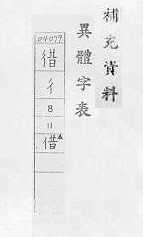 補充資料
異體字表
04077
徣
彳
8
11
借▲